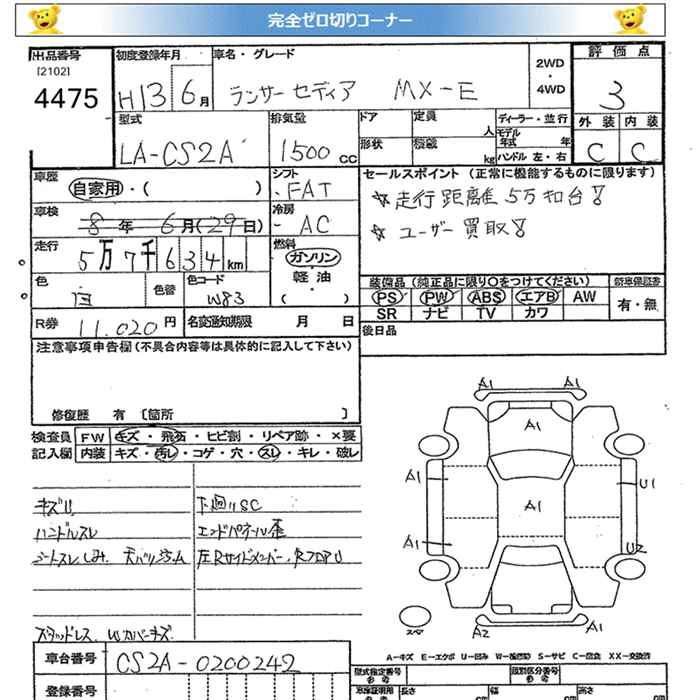 完全ゼロ切りコーナー
出品番号
[2102]
4475
初度登録年月
H13 6月
車名・グレード
ランサーセディア MX-E
2WD
・
4WD
評価点
3
型式
LA-CS2A
排気量
1500 CC
ドア
定員
人
形状
積載
kg
ディーラー・並行
モデル
年式 年
ハンドル 左・右
外装 内装
C C
車歴
自家用・( )
シフト
FAT
セールスポイント (正常に機能するものに限ります)
☆走行距離5万和台!
☆ユーザー買取!
車検
8年 6月(29日)
冷房
AC
走行
5万7千634km
燃料
ガソリン
軽油
( )
色
白
色替
色コード
W83
装備品(純正品に限り○をつけてください)
PS PW ABS エアB AW
SR ナビ TV カワ
新車保証書
有・無
R券 11,020円
名変通知期限 月 日
後日品
注意事項申告欄(不具合内容等は具体的に記入して下さい)
修復歴 有 [箇所 ]
検査員
記入欄
FW キズ・飛石・ヒビ割・リペア跡・×要
内装 キズ・汚レ・コゲ・穴・スレ・キレ・破レ
キズU
ハンドルスレ
シートスレ.しみ. 天バリ汚ム
下廻りSC
エンドパネル歪
左Rサイドメンバー・RフロアU
スタッドレス. Wカバーキズ
A1 A1
A1
A1 U1
A1
A1 U2
A2 A1
スペア
A-キズ E-エクボ U-凹み W-補修跡 S-サビ C-腐食 XX-交換済
車台番号 CS2A-0200242
登録番号
型式指定番号
参考
類別区分番号
参考
長さ cm
幅 cm
高さ cm